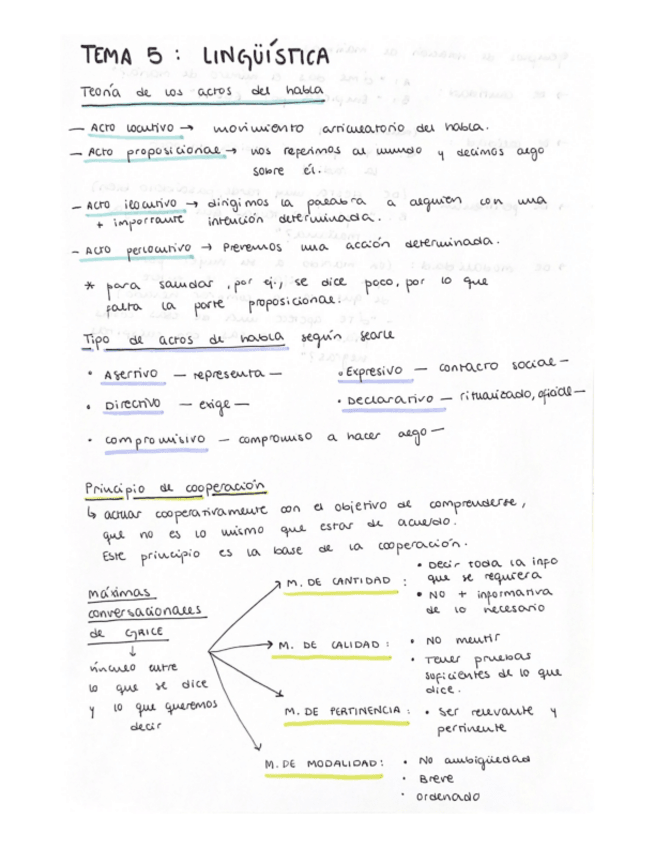 TEMA 5 : LINGÜÍSTICA
Teoría de los actos del habla
— Acto locutivo → movimiento articulatorio del habla.
— Acto proposicional → nos referimos al mundo y decimos algo
sobre él.
— Acto ilocutivo → dirigimos la palabra a alguien con una
+ importante intención determinada.
— Acto perlocutivo → Prevemos una acción determinada.
* para saludar, por ej., se dice poco, por lo que
falta la parte proposicional.
Tipo de actos de habla según searle
· Asertivo — representa —
· Expresivo — contacto social —
· Directivo — exige —
· Declarativo — ritualizado, oficial —
· compromisivo — compromiso a hacer algo —
Principio de cooperación
↳ actuar cooperativamente con el objetivo de comprenderse,
que no es lo mismo que estar de acuerdo.
Este principio es la base de la cooperación.
máximas
conversacionales
de GRICE
↓
vínculo entre
lo que se dice
y lo que queremos
decir
M. DE CANTIDAD :
• Decir toda la info
que se requiera
• No + informativa
de lo necesario
M. DE CALIDAD :
• No mentir
• Tener pruebas
suficientes de lo que
dice.
M. DE PERTINENCIA :
• Ser relevante y
pertinente
M. DE MODALIDAD :
• No ambigüedad
• Breve
• ordenado